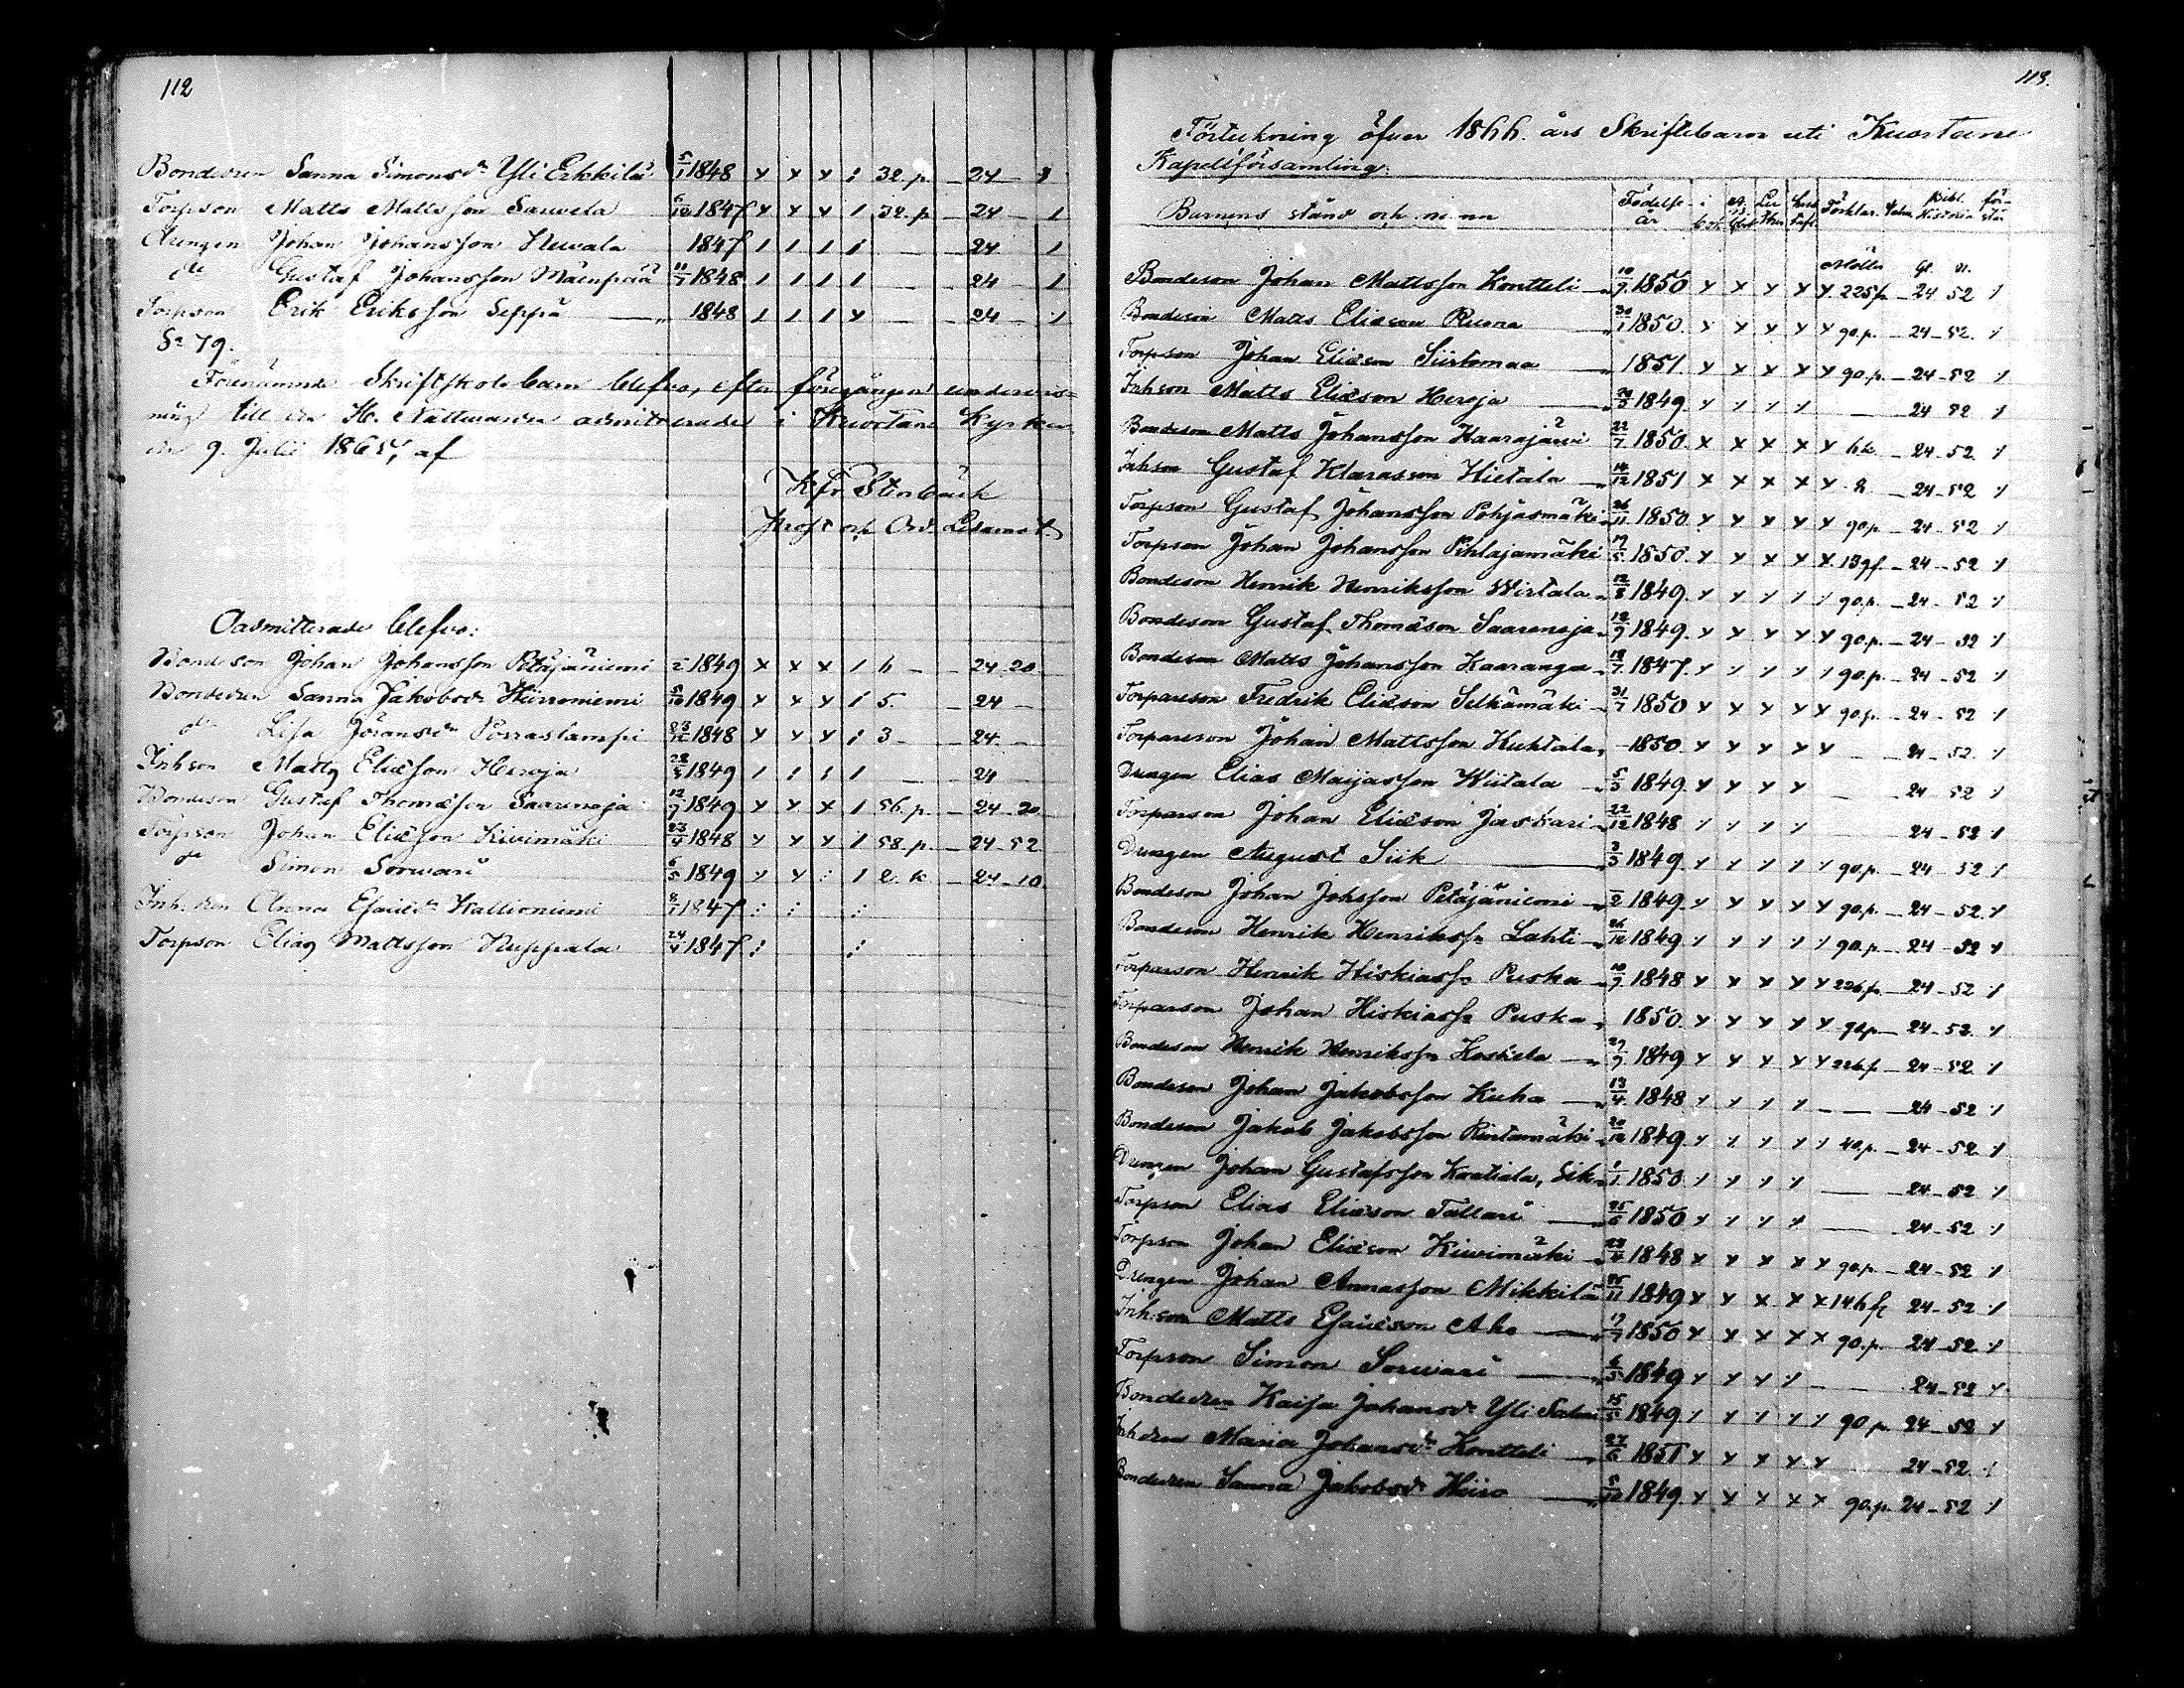 112
Bondedren Sanna Simonsdr Yli Erkkilä 5/1 1848 x x x / 32.p. - 24 - /
Torpson Matts Mattsson Sauvela 6/10 1847 x x x / 32.p - 24 - /
Drengen Johan Johansson 1847 / / / / - 24 /
do Gustaf Johansson Mäenpää 11/7 1848 / / / / - 24 - /
Torpson Erik Eriksson Seppä 1848 / / / x - 24 - /
Sa 79.
Förenämnde Skriftskolebarn blefvo, efter föregången undervis=
ning till den H. Nattvarden admitterade i Kuortane Kyrka
den 9. Julii 1865, af
K. Fr. Stenbäck
Prost och
Oadmitterade blefvo:
Bondeson Johan Johansson Petäjäniemi 1/2 1849 x x x / 6 - - 24.20.
Bondedren Sanna Jakobsdr Hiironniemi 5/10 1849 x x x / 5. - 24 -
do Lisa Göransdr Porraslampi 23/12 1848 x x x / 3 - - 24. -
Inhson Matts Eliæson Heroja 28/3 1849 / / / / - 24
Bondeson Gustaf Thomæson Saarenoja 12/9 1849 x x x / 56.p. - 24 - 20.
Torpson Johan Eliæson Kivimäki 23/4 1848 x x x / 58.p. - 24 - 52
do Simon Sorvari 6/5 1849 x x / / 2. k. - 24 - 10.
Inh.dren Anna Esaiædr Kallioniemi 8/1 1847 : : :
Torpson Elias Mattsson Kuppala 24/4 1847 : :
113.
Förteckning öfver 1866. års Skriftebarn uti Kuortane
Kapellförsamling.
Barnens stånd och namn Födelse- år i bok Förklar. Bibl. Historia
Möller Gl. N.
Bondeson Johan Mattsson Kontteli 10/9 1850 x x x x x. 225 p. - 24 52 /
Bondeson Matts Eliæson Ruona 30/1 1850. x x x x x 90.p. - 24 - 52. /
Torpson Johan Eliæson Siirtomaa 1851. x x x x x 90.p. - 24 - 52 /
Inhson Matts Eliæson Heroja 28/3 1849. / / / / - 24 52 /
Bondeson Matts Johansson Haarajärvi 22/7 1850. x x x x x - 24 - 52. /
Inhson Gustaf Klarasson Hietala 14/12 1851 x x x x x - 24 - 52 /
Torpson Gustaf Johansson Pohjasmäki 26/11 1850. x x x x x 90.p. - 24 - 52 /
Torpson Johan Johansson Pihlajamäki 17/5 1850. x x x x x. 139p. - 24 - 52 /
Bondeson Henrik Henriksson Wirtala 12/8 1849. / / / / / 90.p. - 24 - 52 /
Bondeson Gustaf Thomæson Saarenoja 12/9 1849. x x x x x 90.p. - 24 - 52 /
Bondeson Matts Johansson Kaaranga 18/7 1847. / / / / / 90.p. - 24 - 52 /
Torpareson Fredrik Eliæson Selkämäki 31/7 1850 x x x x x 90.p. - 24 - 52 /
Torpareson Johan Mattsson Huhtala 1850. x x x x x - 24 - 52. /
Drengen Elias Maijasson Wiitala 5/3 1849. x x x x - 24 - 52 /
Torparson Johan Eliæson Jaskari 22/12 1848 / / / / - 24 - 52 /
Drengen August Siik 3/3 1849. / / / / / 90.p. - 24 - 52 /
Bondeson Johan Johsson Petäjäniemi 1/2 1849. x x x x x 90.p. - 24 - 52. /
Bondeson Henrik Henrikss. Lahti 26/12 1849 / / / / / 90.p. - 24 - 52 /
Torparson Henrik Hiskiass. Puska 10/9 1848 x x x x x 226.p. - 24 - 52 /
Torparson Johan Hiskiass. Puska 1850. x x x x x 90.p. - 24 - 52. /
Bondeson Henrik Henrikssn Koskela 27/9 1849 x x x x x 226 p. - 24 - 52 /
Bondeson Johan Jakobsson Kuha 13/4 1848 / / / / - - 24 - 52 /
Bondeson Jakob Jakobsson Rintamäki 20/12 1849. / / / / / 40.p. - 24 - 52 /
Drengen Johan Gustafsson Kaatiala, Sik 1/1 1850 / / / / - 24 - 52 /
Torpson Elias Eliæson Tallari 25/6 1850 / / / / - 24 - 52 /
Torpson Johan Eliæson Kiwimäki 23/4 1848 x x x x x 90.p. - 24 - 52 /
Drengen Johan Annasson Mikkilä 25/11 1849 x x x x x 146 p. 24 - 52 /
Inh.son Matts Esaiæson Aho 17/7 1850 x x x x x 90.p. 24 - 52 /
Torpson Simon Sorwari 6/5 1849 x x x / - - 24 - 52 /
Bondedren Kaisa Johansdr Yli Salmi 15/5 1849 / / / / / 90 p. 24 - 52 /
Inhdren Maria Johansdr Kontteli 27/6 1851 x x x x x 24 - 52. /
Bondedren Sanna Jakobsdr Hiiro 5/10 1849 x x x x x 90.p. 24 - 52 /